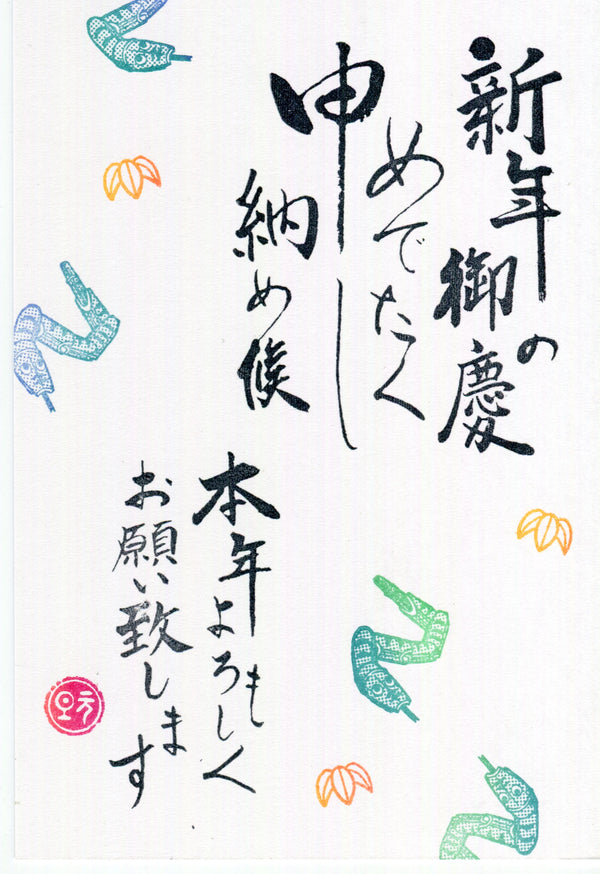 新年の御慶
めでたく
申し
納め候
本年もよろしく
お願い致します